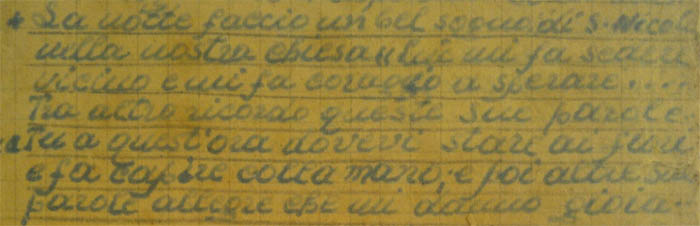 La notte faccio un bel sogno di S. Nicol
nella nostra chiesa Lui mi fa
vicino e mi fa coraggio a sperare....
Tra altro ricordo queste sue parole
Tu a quest'ora dovevi stare ai fiori
e fa capire colla mano, e poi altre sue
parole allegre che mi danno gioia.